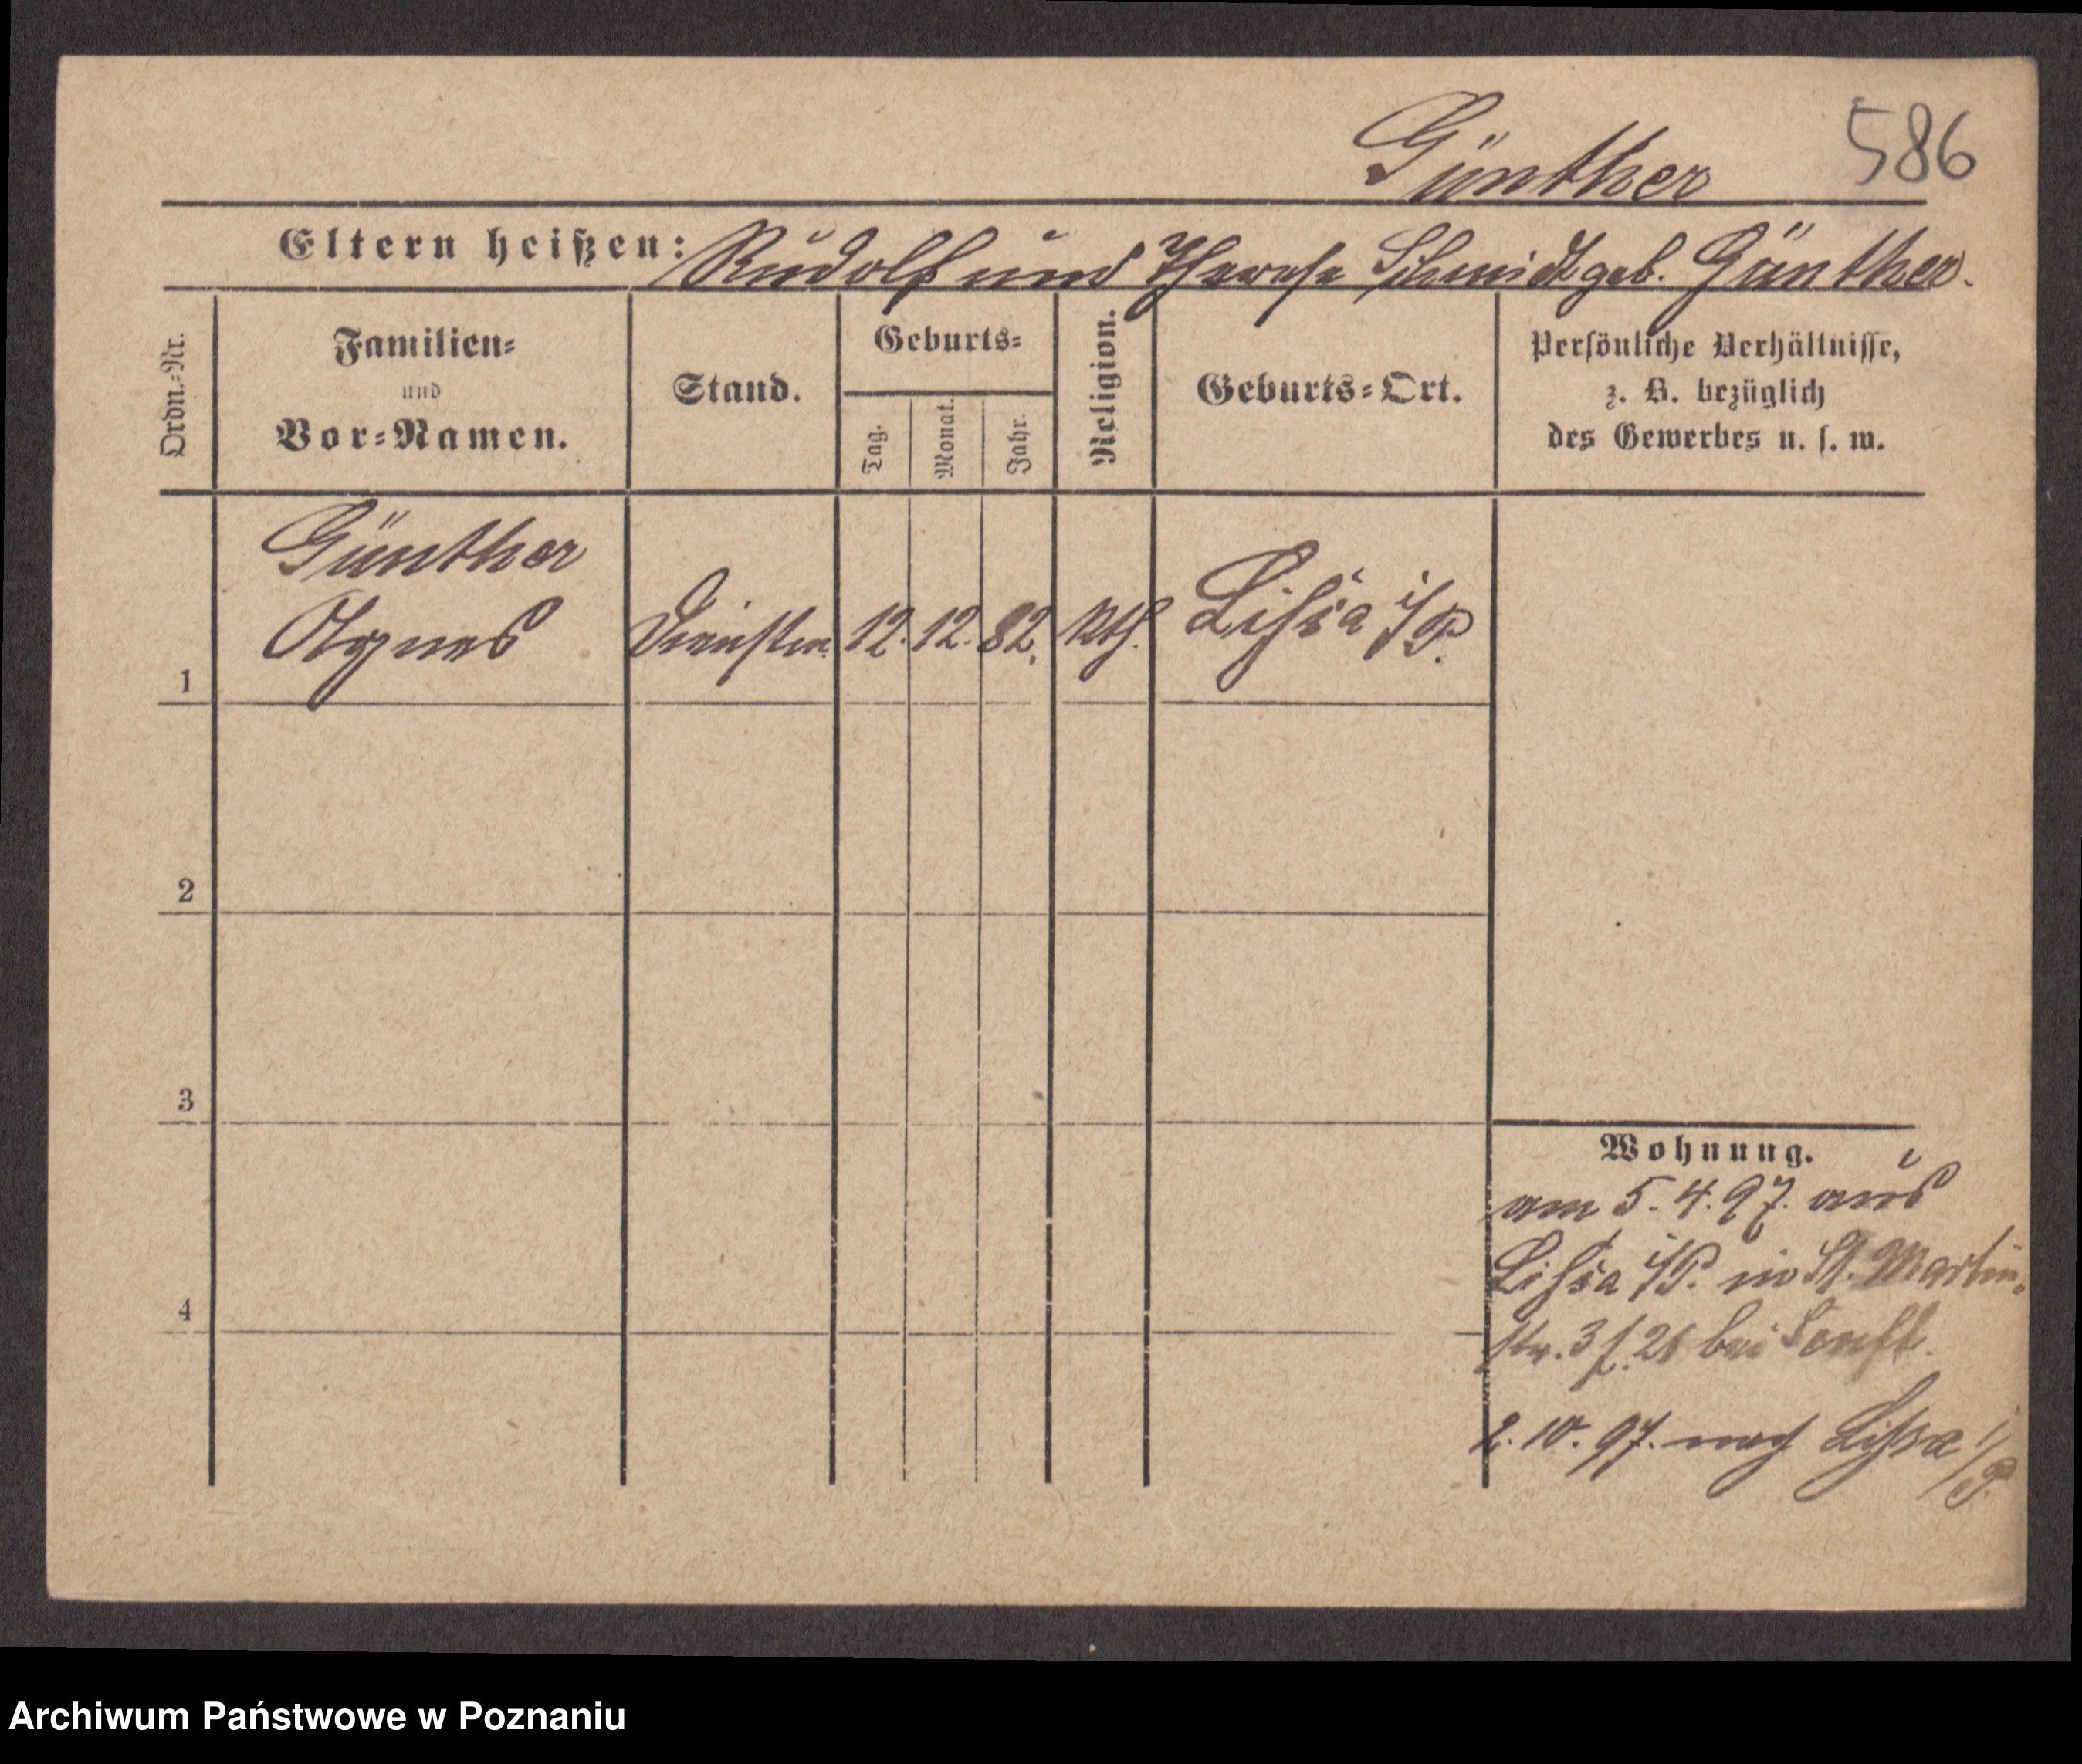 Günther 586
Eltern heißen: Rudolf und Therese Schmidt geb. Günther.
Ordn.-Nr. Familien- und Vor-Namen. Stand. Geburts- Tag. Monat. Jahr. Religion. Geburts-Ort. Persönliche Verhältnisse, z. B. bezüglich des Gewerbes u. s. w.
Günther
1 Agnes Dienstm. 12. 12. 82. Kth. Lissa i/P.
2
3
4
Wohnung.
am 5.4.97. aus
Lissa i/P. in St. Martin-
str. 3 bei
2.10.97. nach Lissa i/P.
Archiwum Państwowe w Poznaniu